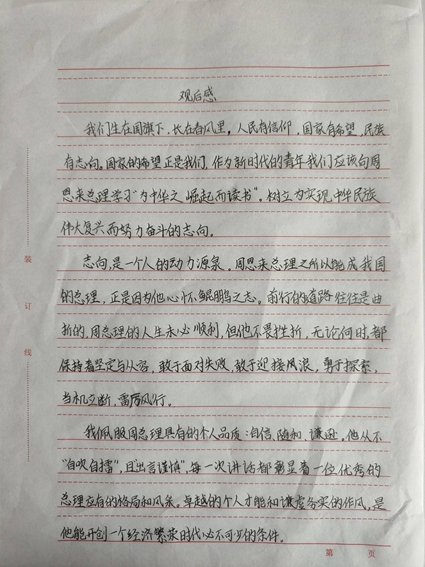 观后感
我们生在国旗下，长在春风里。人民有信仰，国家有希望，民族
有志向。国家的希望正是我们，作为新时代的青年我们应该向周
恩来总理学习“为中华之崛起而读书”。树立为实现中华民族
伟大复兴而努力奋斗的志向。
志向，是一个人的动力源泉，周恩来总理之所以能成我国
的总理，正是因为他心怀鲲鹏之志。前行的道路往往是曲
折的，周总理的人生未必顺利，但他不畏挫折，无论何时，都
保持着坚定与从容，敢于面对失败，敢于迎接风浪，勇于探索，
当机立断，雷厉风行。
我佩服周总理具有的个人品质：自信、随和、谦逊。他从不
“自吹自擂”，且“出言谨慎”，每一次讲话都彰显着一位优秀的
总理应有的格局和风采。卓越的个人才能和谦虚务实的作风，是
他能开创一个经济繁荣时代必不可少的条件。
装
订
线
第 页